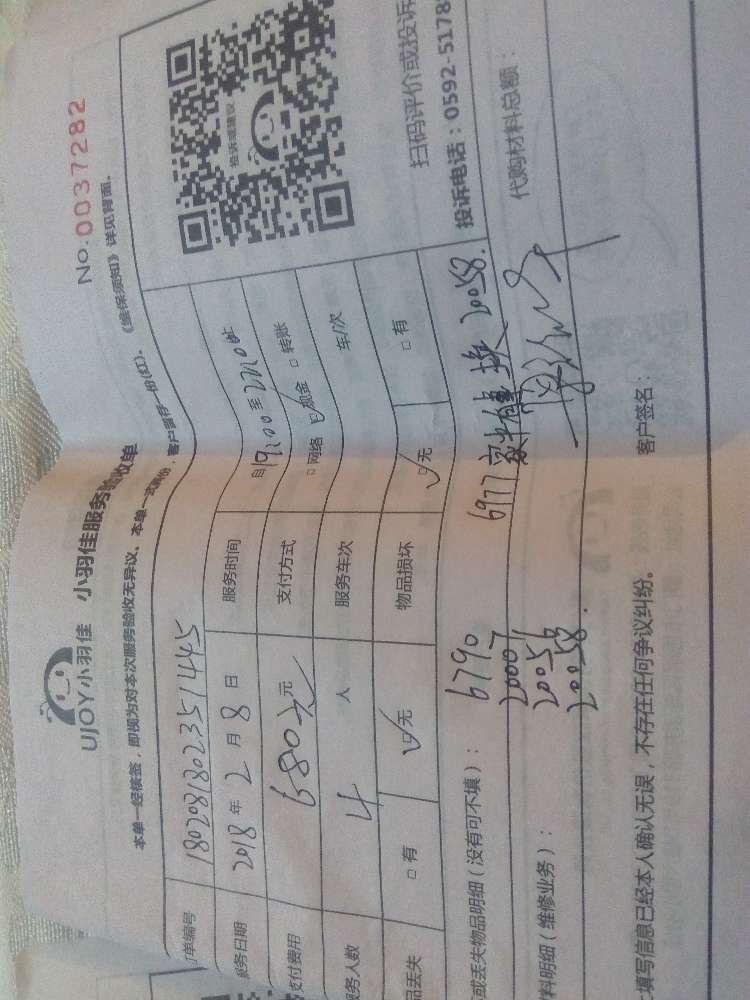 No.0037282
UJOY小羽佳 小羽佳服务验收单
本单一经核签，即视为对本次服务验收无异议、本单一式两份，客户留存一份(红)。《维保须知》详见背面。
订单编号 180208180235 1445
服务日期 2018年2月8日 服务时间 自19:00至22:00止
支付费用 680元 支付方式 □网络 ☑现金 □转账
服务人数 4人 服务车次 车/次
物品丢失 □有 ☑无 物品损坏 ☑无 □有
投诉或建议
扫码评价或投诉
投诉电话：0592-5178
或丢失物品明细（没有可不填）： 6790 6977 换 20058.
20007
20051
20058.
料明细（维修业务）：
代购材料总额：
填写信息已经本人确认无误，不存在任何争议纠纷。 客户签名：